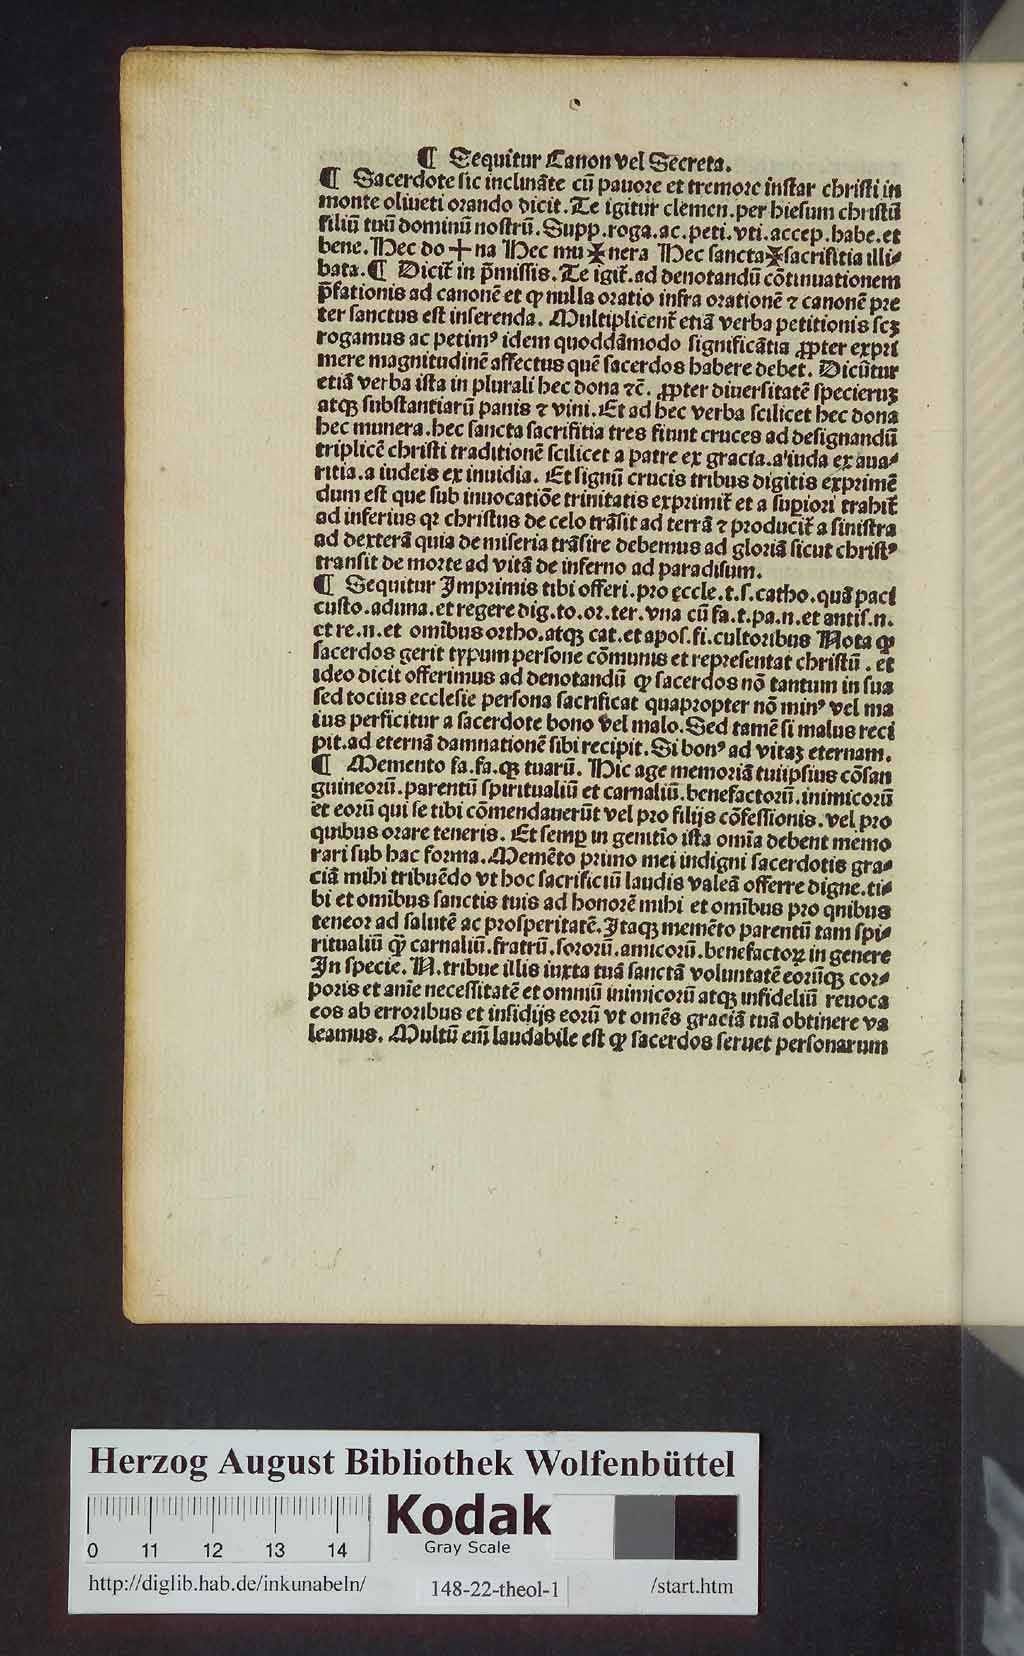 ¶ Sequitur Canon vel Secreta.
¶ Sacerdote sic inclināte cū pauore et tremore instar christi in
monte oliueti orando dicit. Te igitur clemen. per hiesum christū
filiū tuū dominū nostrū. Supp. roga. ac. peti. vti. accep. habe. et
bene. Hec do ✝ na Hec mu ✠ nera Hec sancta ✠ sacrifitia illi-
bata. ¶ Dicit̄ in p̄missis. Te igit̄. ad denotandū cōtinuationem
p̄fationis ad canonē et ꝙ nulla oratio infra orationē ⁊ canonē pre
ter sanctus est inserenda. Multiplicent̄ etiā verba petitionis scꝫ
rogamus ac petimꝰ idem quoddāmodo significātia ꝓpter expri
mere magnitudinē affectus quē sacerdos habere debet. Dicūtur
etiā verba ista in plurali hec dona ⁊c̄. ꝓpter diuersitatē specieruꝫ
atqꝫ substantiarū panis ⁊ vini. Et ad hec verba scilicet hec dona
hec munera. hec sancta sacrifitia tres fiunt cruces ad designandū
triplicē christi traditionē scilicet a patre ex gracia. a iuda ex aua-
ritia. a iudeis ex inuidia. Et signū crucis tribus digitis exprimē
dum est que sub inuocatiōe trinitatis exprimit̄ et a suꝑiori trahit̄
ad inferius qꝛ christus de celo trāsit ad terrā ⁊ producit̄ a sinistra
ad dexterā quia de miseria trāsire debemus ad gloriā sicut christꝰ
transit de morte ad vitā de inferno ad paradisum.
¶ Sequitur Imprimis tibi offeri. pro eccle. t. s. catho. quā paci
custo. aduna. et regere dig. to. or. ter. vna cū fa. t. pa. n. et antis. n.
et re. n. et omībus ortho. atqꝫ cat. et apos. fi. cultoribus Nota ꝙ
sacerdos gerit typum persone cōmunis et representat christū. et
ideo dicit offerimus ad denotandū ꝙ sacerdos nō tantum in sua
sed tocius ecclesie persona sacrificat quapropter nō minꝰ vel ma
ius perficitur a sacerdote bono vel malo. Sed tamē si malus reci
pit. ad eternā damnationē sibi recipit. Si bonꝰ ad vitaꝫ eternam.
¶ Memento fa. fa. qꝫ tuarū. Hic age memoriā tuiipsius cōsan
guineorū. parentū spiritualiū et carnaliū. benefactorū. inimicorū
et eorū qui se tibi cōmendauerūt vel pro filijs cōfessionis. vel pro
quibus orare teneris. Et semꝑ in genitio ista omīa debent memo
rari sub hac forma. Memēto primo mei indigni sacerdotis gra-
ciā mihi tribuēdo vt hoc sacrificiū laudis valeā offerre digne. ti-
bi et omībus sanctis tuis ad honorē mihi et omībus pro qnibus
teneor ad salutē ac prosperitatē. Itaqꝫ memēto parentū tam spi-
ritualiū ꝙ̄ carnaliū. fratrū. sororū. amicorū. benefactoꝝ in genere
In specie. N. tribue illis iuxta tuā sanctā voluntatē eorūqꝫ cor-
poris et anīe necessitatē et omniū inimicorū atqꝫ infideliū reuoca
eos ab erroribus et insidijs eorū vt omēs graciā tuā obtinere va
leamus. Multū em̄ laudabile est ꝙ sacerdos seruet personarum
Herzog August Bibliothek Wolfenbüttel
Kodak
Gray Scale
0 11 12 13 14
http://diglib.hab.de/inkunabeln/ 148-22-theol-1 /start.htm